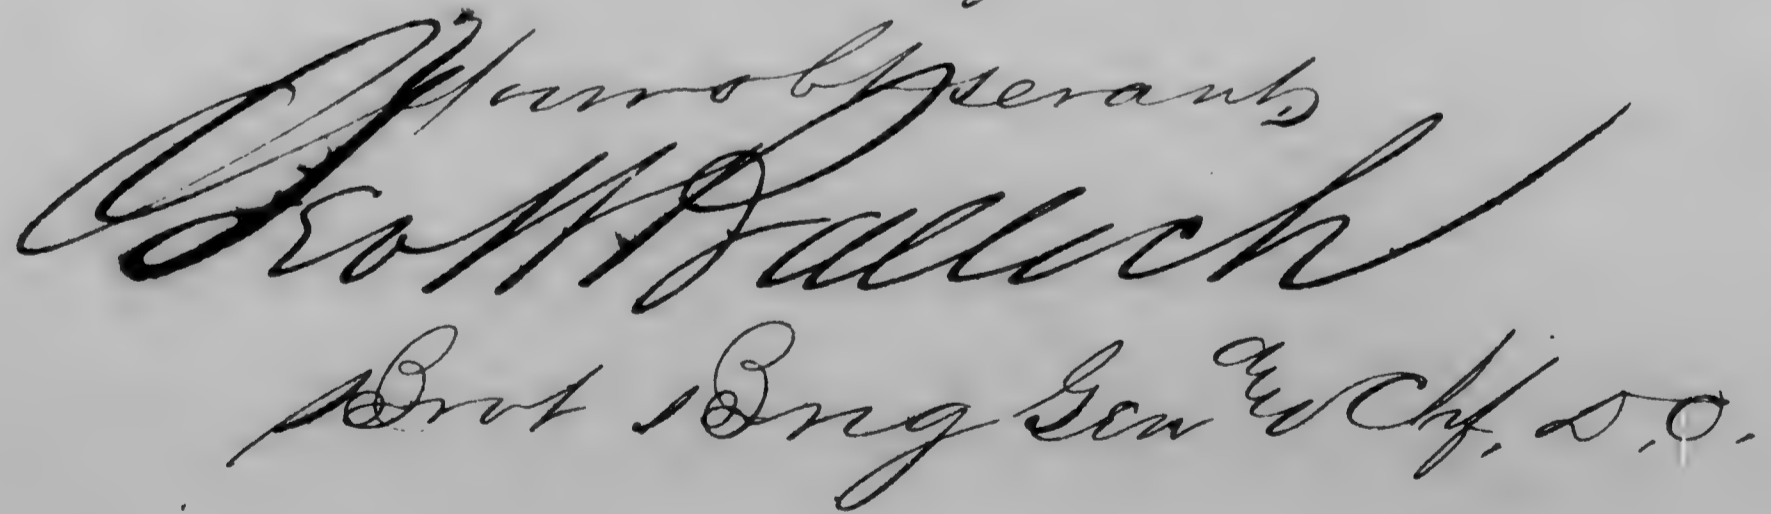 Your obt servant
Geo W Balloch
Bvt Brig Gen and Chf. D.O.